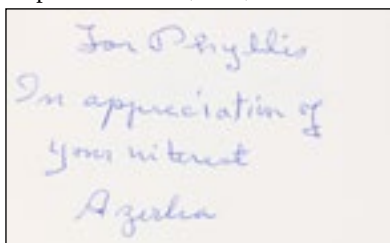 For Phyllis
In appreciation of
your interest